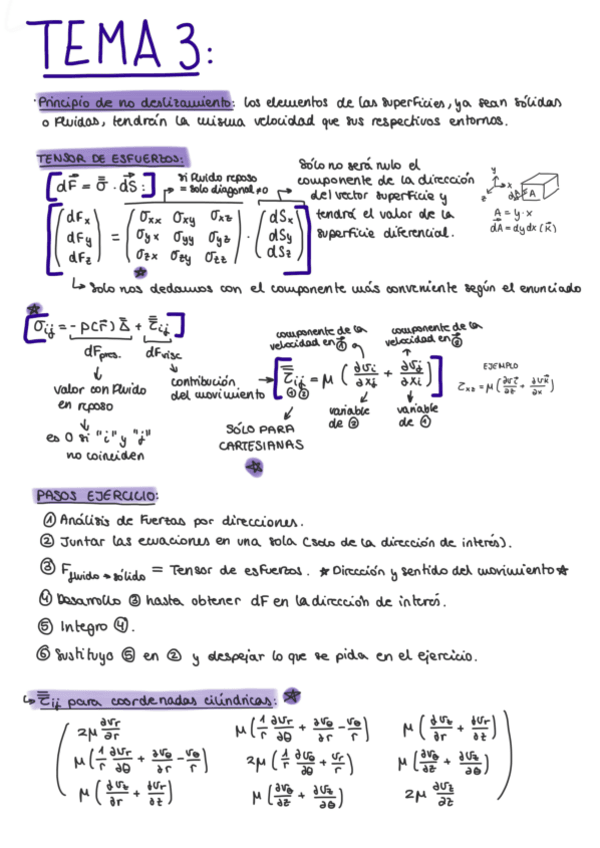 TEMA 3:
Principio de no deslizamiento: los elementos de las superficies, ya sean sólidas
o fluidas, tendrán la misma velocidad que sus respectivos entornos.
TENSOR DE ESFUERZOS:
[dF⃗ = σ̿ · dS⃗ :]
si fluido reposo
= solo diagonal ≠0
Sólo no será nulo el
componente de la dirección
del vector superficie y
tendrá el valor de la
superficie diferencial.
y
x
z
A
A = y·x
dA⃗ = dydx (k⃗)
[(dFx dFy dFz) = (σxx σxy σxz
σyx σyy σyz
σzx σzy σzz) · (dSx dSy dSz)]
↳ Solo nos quedamos con el componente más conveniente según el enunciado
[σij = -p(r⃗) Δ̿ + τ̿ij]
dFpres.
dFvisc
valor con fluido
en reposo
es 0 si "i" y "j"
no coinciden
contribución
del movimiento
componente de la
velocidad en ①
componente de la
velocidad en ②
[τ̿ij = μ (∂vi/∂xj + ∂vj/∂xi)]
① ②
variable
de ②
variable
de ①
SÓLO PARA
CARTESIANAS
EJEMPLO
PASOS EJERCICIO:
① Análisis de fuerzas por direcciones.
② Juntar las ecuaciones en una sola (solo de la dirección de interés).
③ F fluido → sólido = Tensor de esfuerzos. ★ Dirección y sentido del movimiento ★
④ Desarrollo ③ hasta obtener dF en la dirección de interés.
⑤ Integro ④.
⑥ Sustituyo ⑤ en ② y despejar lo que se pida en el ejercicio.
↳ τ̿ij para coordenadas cilíndricas:
2μ ∂vr/∂r   μ(1/r ∂vr/∂θ + ∂vθ/∂r - vθ/r)   μ(∂vz/∂r + ∂vr/∂z)
μ(1/r ∂vr/∂θ + ∂vθ/∂r - vθ/r)   2μ(1/r ∂vθ/∂θ + vr/r)   μ(∂vθ/∂z + ∂vz/∂θ)
μ(∂vz/∂r + ∂vr/∂z)   μ(∂vθ/∂z + ∂vz/∂θ)   2μ ∂vz/∂z